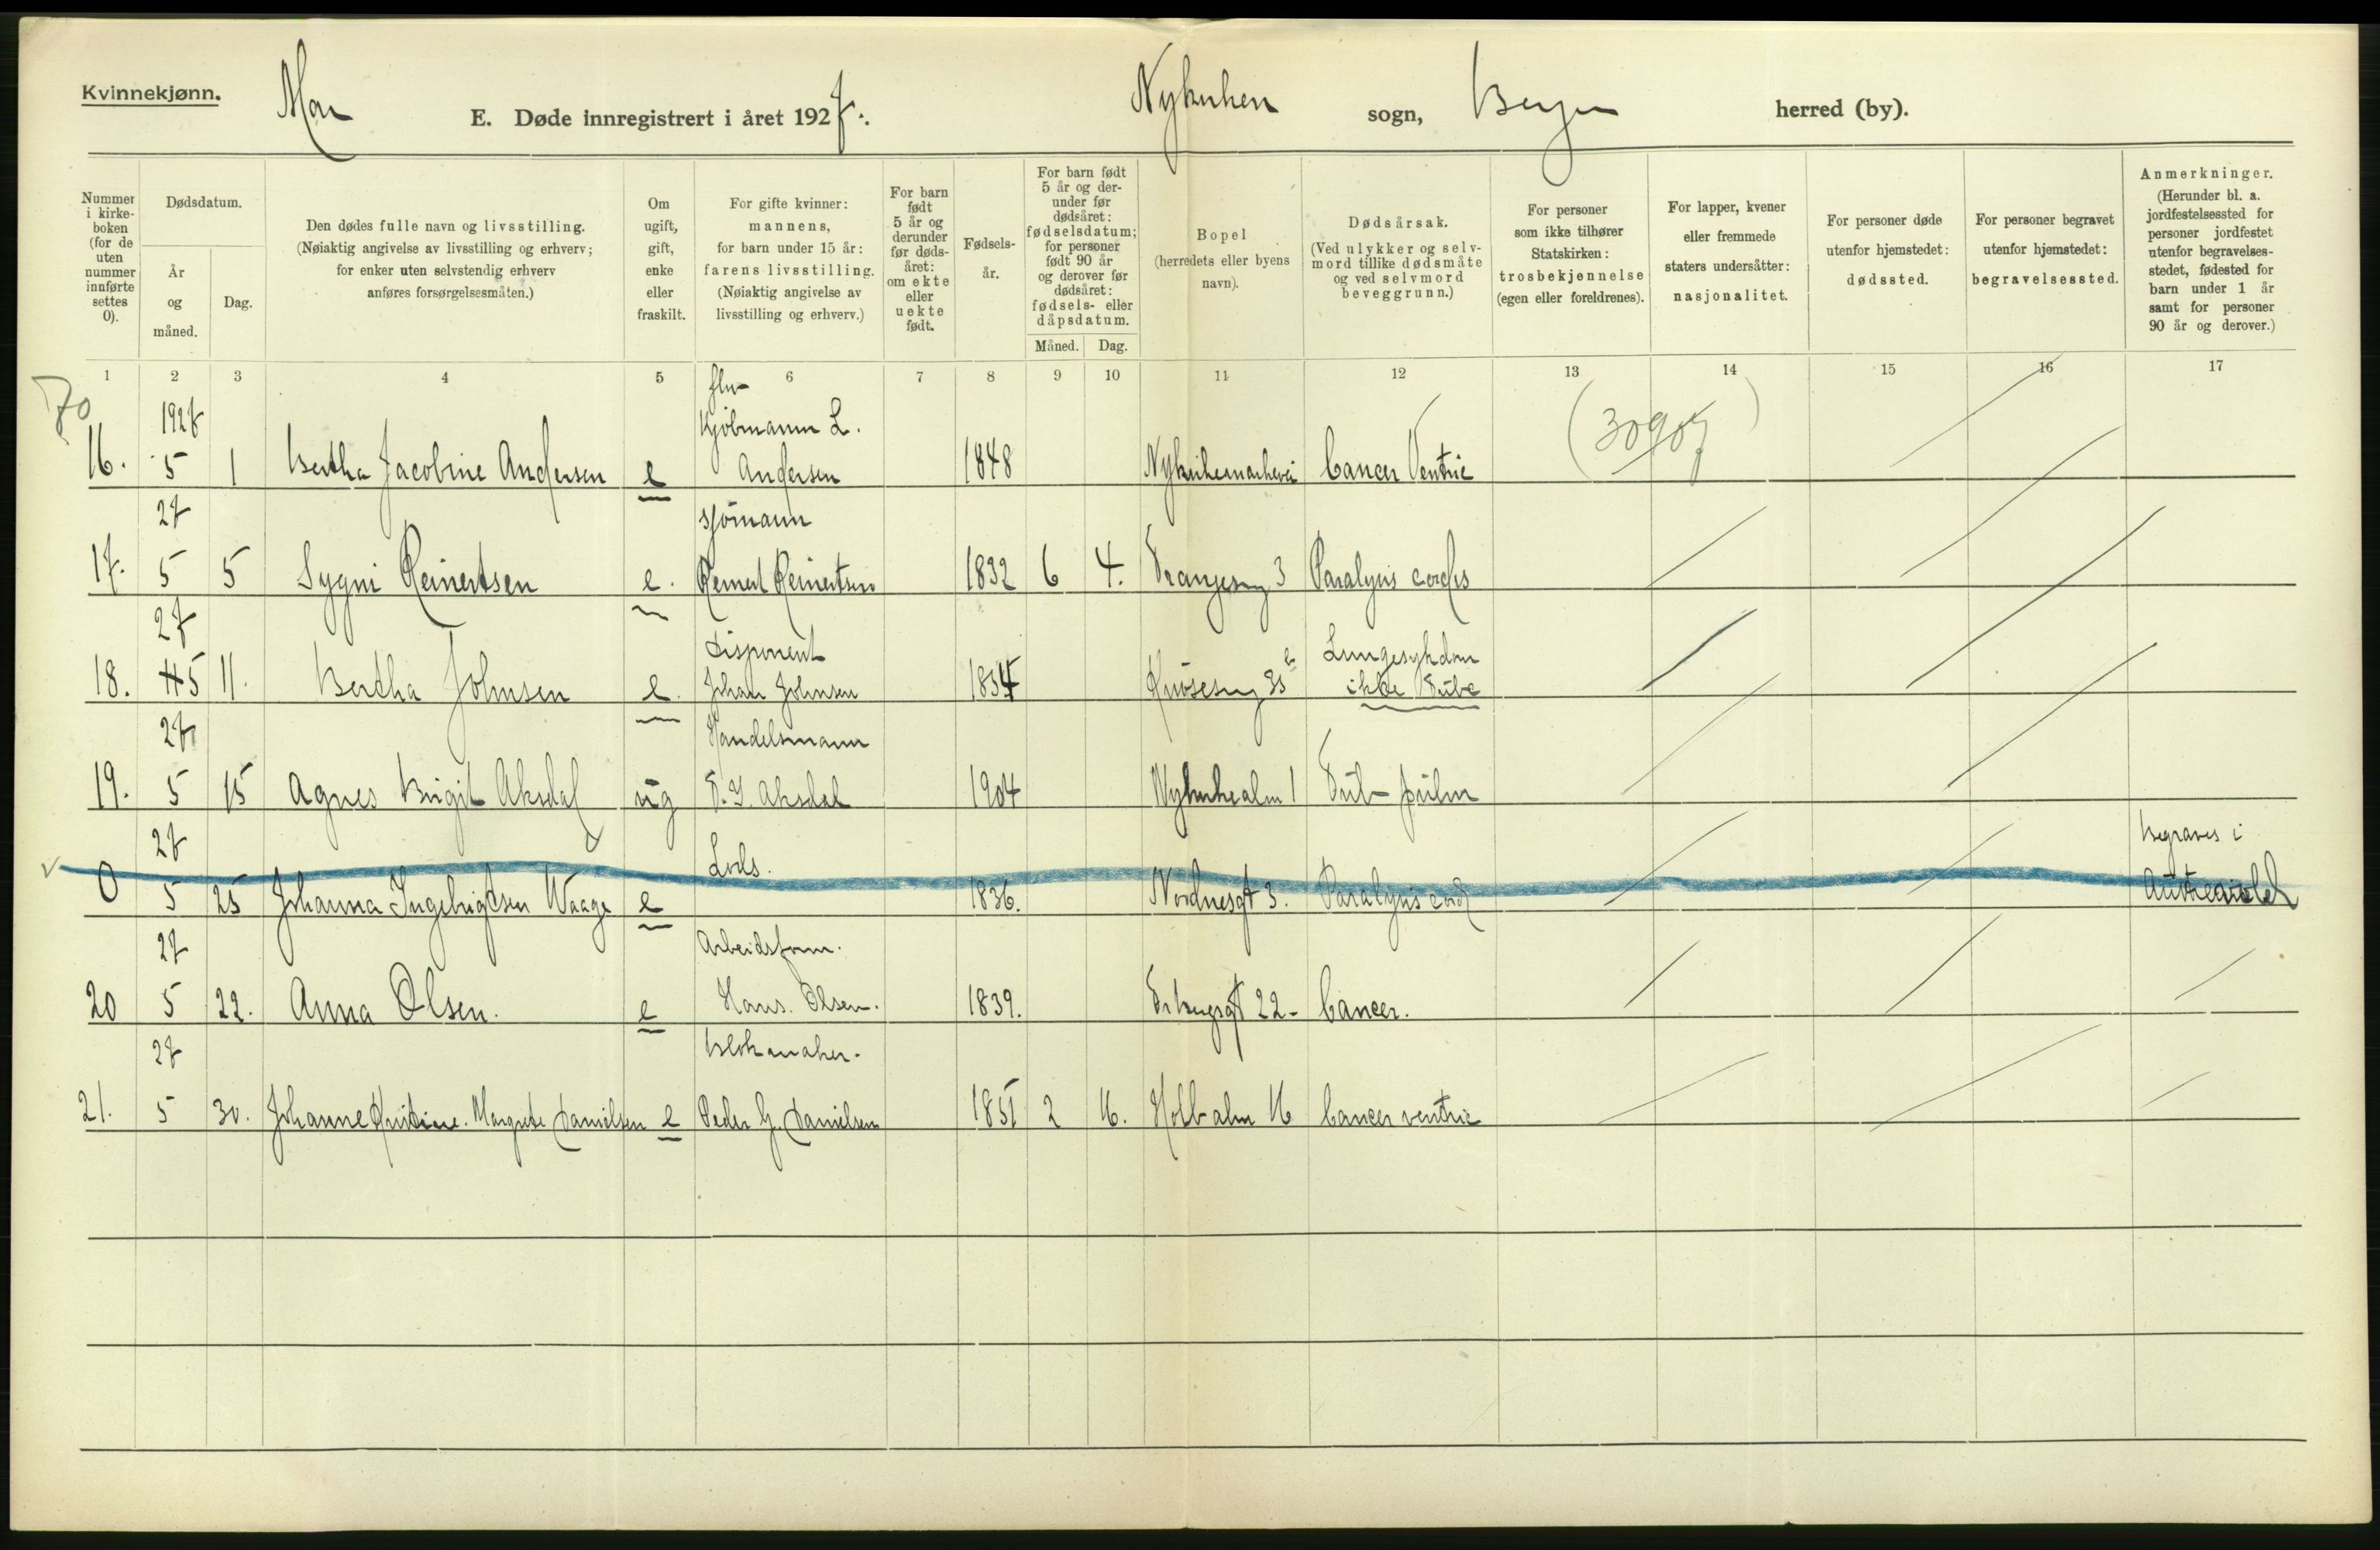 Kvinnekjønn.
Mai
E. Døde innregistrert i året 1927.
Nykirken sogn, Bergen herred (by).
Nummer i kirkeboken (for de uten nummer innførte settes 0).
Dødsdatum.
År og måned.
Dag.
Den dødes fulle navn og livsstilling.
(Nøiaktig angivelse av livsstilling og erhverv;
for enker uten selvstendig erhverv
anføres forsørgelsesmåten.)
Om ugift, gift, enke eller fraskilt.
For gifte kvinner:
mannens,
for barn under 15 år:
farens livsstilling.
(Nøiaktig angivelse av
livsstilling og erhverv.)
For barn født 5 år og derunder før dødsåret: om ekte eller uekte født.
Fødselsår.
For barn født 5 år og derunder før dødsåret: fødselsdatum; for personer født 90 år og derover før dødsåret: fødsels- eller dåpsdatum.
Måned. Dag.
Bopel
(herredets eller byens
navn).
Dødsårsak.
(Ved ulykker og selvmord tillike dødsmåte og ved selvmord beveggrunn.)
For personer
som ikke tilhører
Statskirken:
trosbekjennelse
(egen eller foreldrenes).
For lapper, kvener
eller fremmede
staters undersåtter:
nasjonalitet.
For personer døde
utenfor hjemstedet:
dødssted.
For personer begravet
utenfor hjemstedet:
begravelsessted.
Anmerkninger.
(Herunder bl. a.
jordfestelsessted for
personer jordfestet
utenfor begravelsesstedet, fødested for
barn under 1 år
samt for personer
90 år og derover.)
1 2 3 4 5 6 7 8 9 10 11 12 13 14 15 16 17
70
1927
Kjöbmann L.
16. 5 1 Bertha Jacobine Andersen e Andersen 1848 Cancer Ventric
(30907)
27 sjömann
17. 5 5 Sygni Reinertsen e. Reinert Reinertsen 1832 6 4. Paralysis cordis
27 Disponent Lungesykdom
18. 5 11. Bertha Johnsen e. Johan Johnsen 1854 ikke Tube
27 Handelsmann
19. 5 15 Agnes Birgit Aksdal ug T. I. Aksdal 1904 Nykirkealm 1 Tub pulm
27 Lods. Begraves i
0 5 25 Johanna Ingebrigtsen Waage e 1836. Nordnesgt 3. Paralysis cord Austevold
27 Arbeidsform.
20 5 22. Anna Olsen. e Hans. Olsen. 1839. 22- Cancer.
27 Blokmaker.
21. 5 30. Johanne Kristine. Margrete Danielsen e Peder G. Danielsen 1851 2 16. Holb alm 16 Cancer ventric